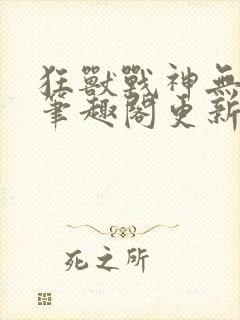 狂獸戰神無
筆趣閣更新
死之所